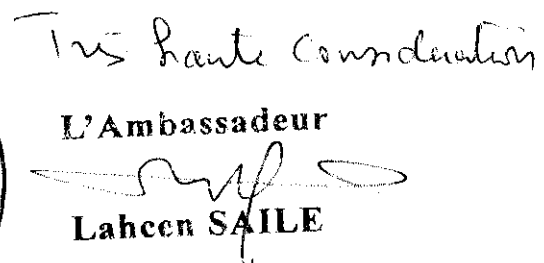 Très haute Considération
L'Ambassadeur
Lahcen SAILE